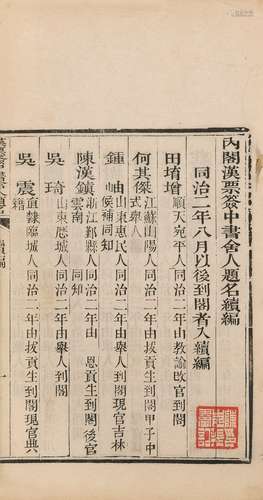 內閣漢票簽中書舍人題名續編
同治二年八月以後到閣者入續編
田堉增 順天宛平人同治二年由教諭改官到閣
何其傑 江蘇山陽人同治二年由舉人到閣甲子中
式舉人
鍾岫 山東惠民人同治二年由拔貢生到閣現官吉林
候補同知
陳漢鎮 浙江鄞縣人同治二年由恩貢生到閣後官
雲南同知
吳琦 山東歷城人同治二年由舉人到閣
吳震 直隸臨城人同治二年由拔貢生到閣現官典
籍